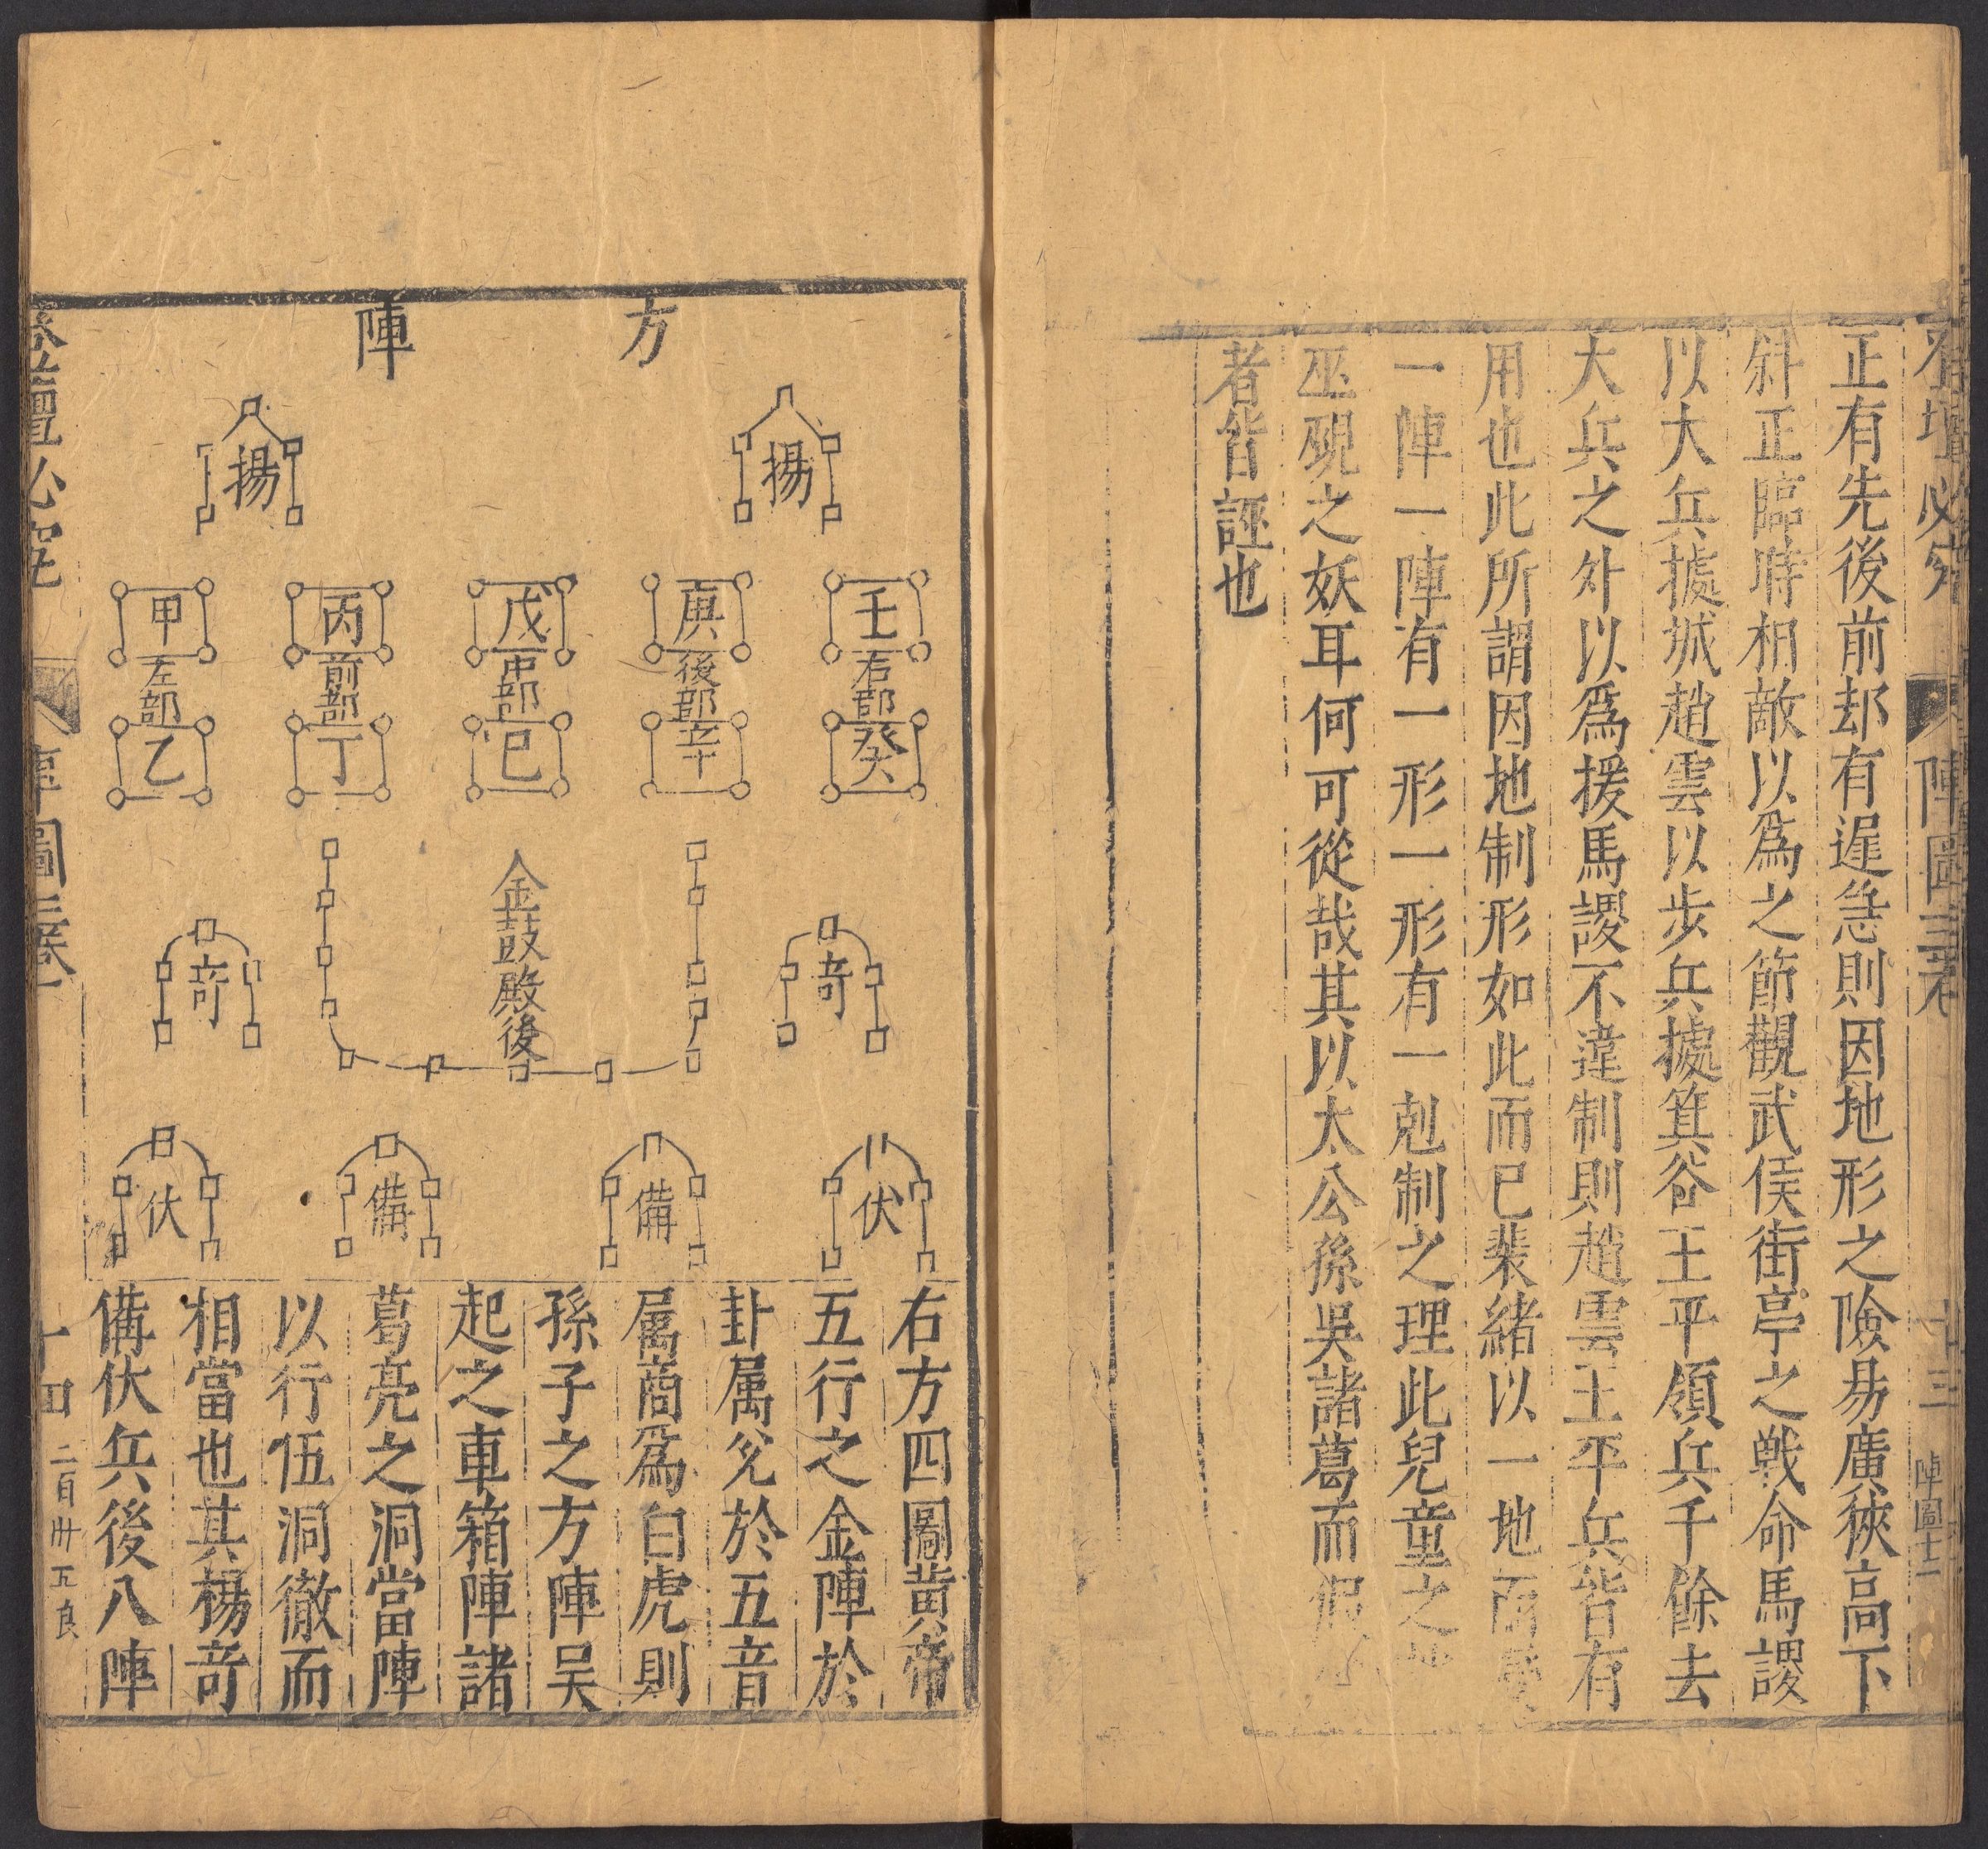 登壇必究
陣圖三卷
十三
陣圖十二
正有先後前却有遲急則因地形之險易廣狹高下
斜正臨時相敵以爲之節觀武侯街亭之戰命馬謖
以大兵據城趙雲以步兵據箕谷王平領兵千餘去
大兵之外以爲援馬謖不違制則趙雲王平兵皆有
用也此所謂因地制形如此而已裴緒以一地而
一陣一陣有一形一形有一剋制之理此兒童之
巫覡之妖耳何可從哉其以太公孫吳諸葛而假
者皆誣也
方陣
揚
揚
壬 右部 癸
庚 後部 辛
戊 中部 己
丙 前部 丁
甲 左部 乙
金鼓殿後
奇
奇
伏
備
備
伏
右方四圖黃帝
五行之金陣於
卦属兌於五音
属商爲白虎則
孫子之方陣吴
起之車箱陣諸
葛亮之洞當陣
以行伍洞徹而
相當也其楊奇
備伏兵後八陣
登壇必究
陣圖三卷
十四
二百卅五良